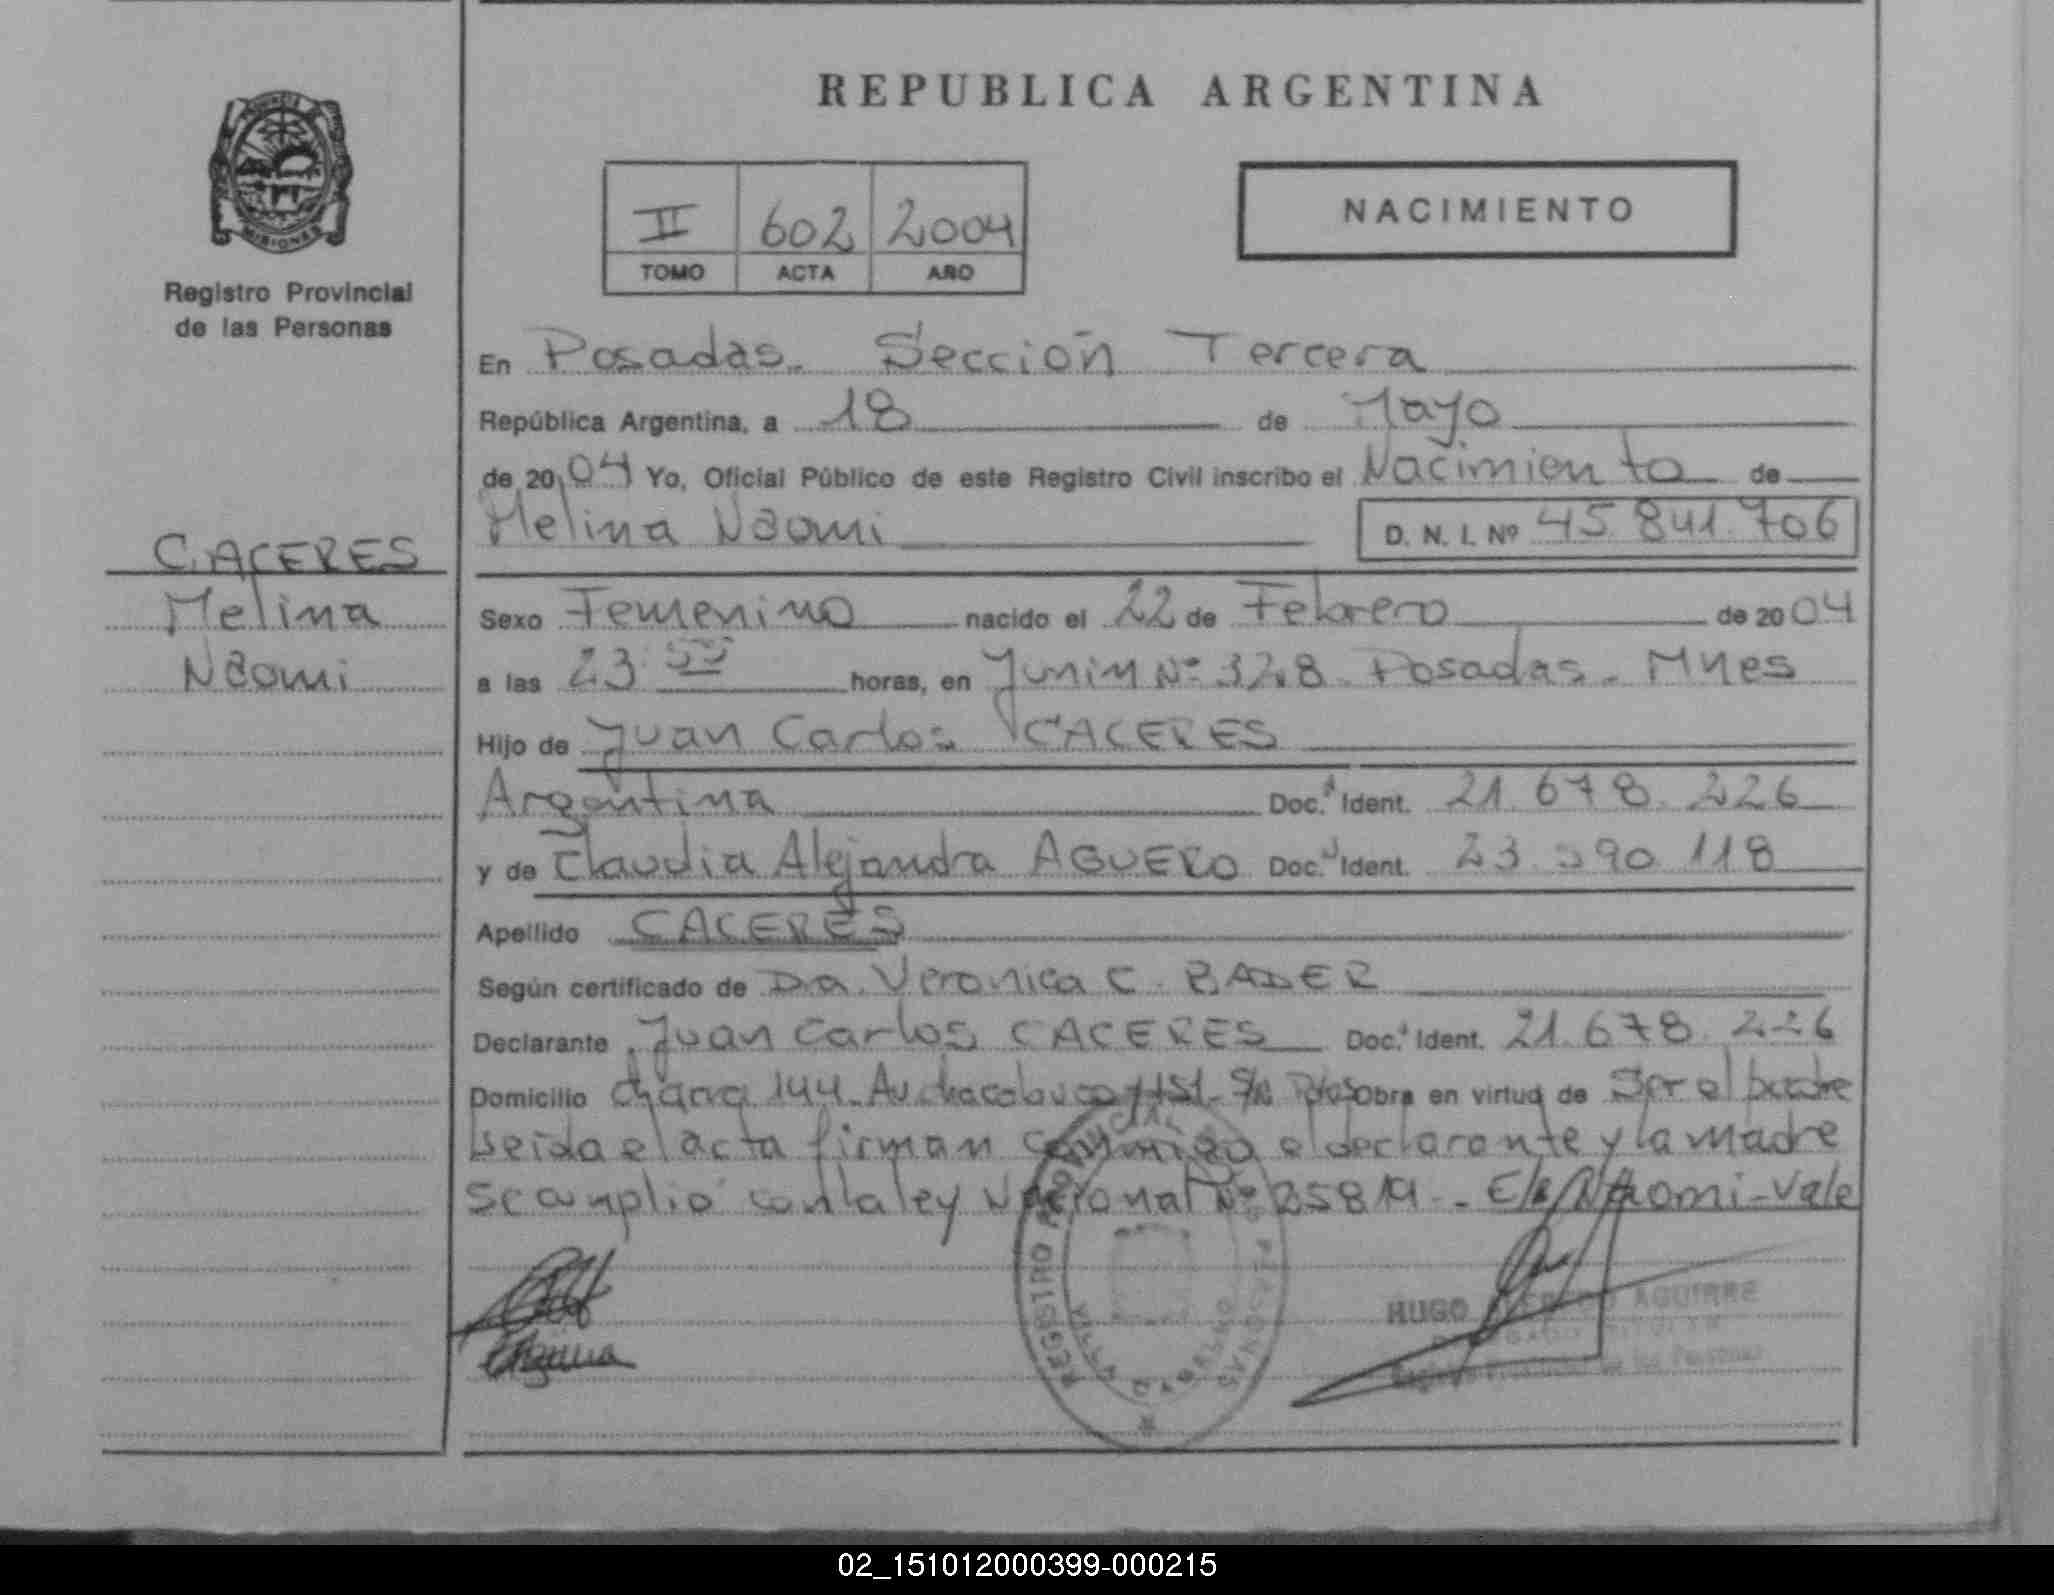 REPUBLICA ARGENTINA
MISIONES
Registro Provincial
de las Personas
II 602 2004
TOMO ACTA AÑO
NACIMIENTO
En Posadas. Sección Tercera
República Argentina, a 18 de Mayo
de 2004 Yo, Oficial Público de este Registro Civil inscribo el Nacimiento de
Melina Naomi D. N. I. Nº 45.841.706
CACERES
Melina
Naomi
Sexo Femenino nacido el 22 de Febrero de 2004
a las 23 horas, en Junin Nº 328 Posadas. Mnes
Hijo de Juan Carlos CACERES
Argentina Doc. Ident. 21.678.226
y de Claudia Alejandra AGUERO Doc. Ident. 23.590.118
Apellido CACERES
Según certificado de Dra. Veronica C. BADER
Declarante Juan Carlos CACERES Doc. Ident. 21.678.226
Domicilio Chacra 144 Av. chacabuco S/N Pdas Obra en virtud de Ser el padre
Leida el acta firman conmigo el declarante y la madre
Se cumplio con la ley Nacional Nº 25819. E/R Naomi-Vale
REGISTRO PROVINCIAL DE LAS PERSONAS
VILLA CABALNO
HUGO AGUIRRE
Registro Provincial de las Personas
02_151012000399-000215